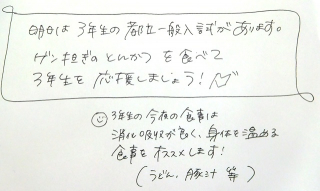 明日は3年生の都立一般入試があります。
ゲン担ぎのとんかつを食べて
3年生を応援しましょう!
3年生の今夜の食事は
消化吸収が良く、身体を温める
食事をオススメします!
(うどん、豚汁 等)